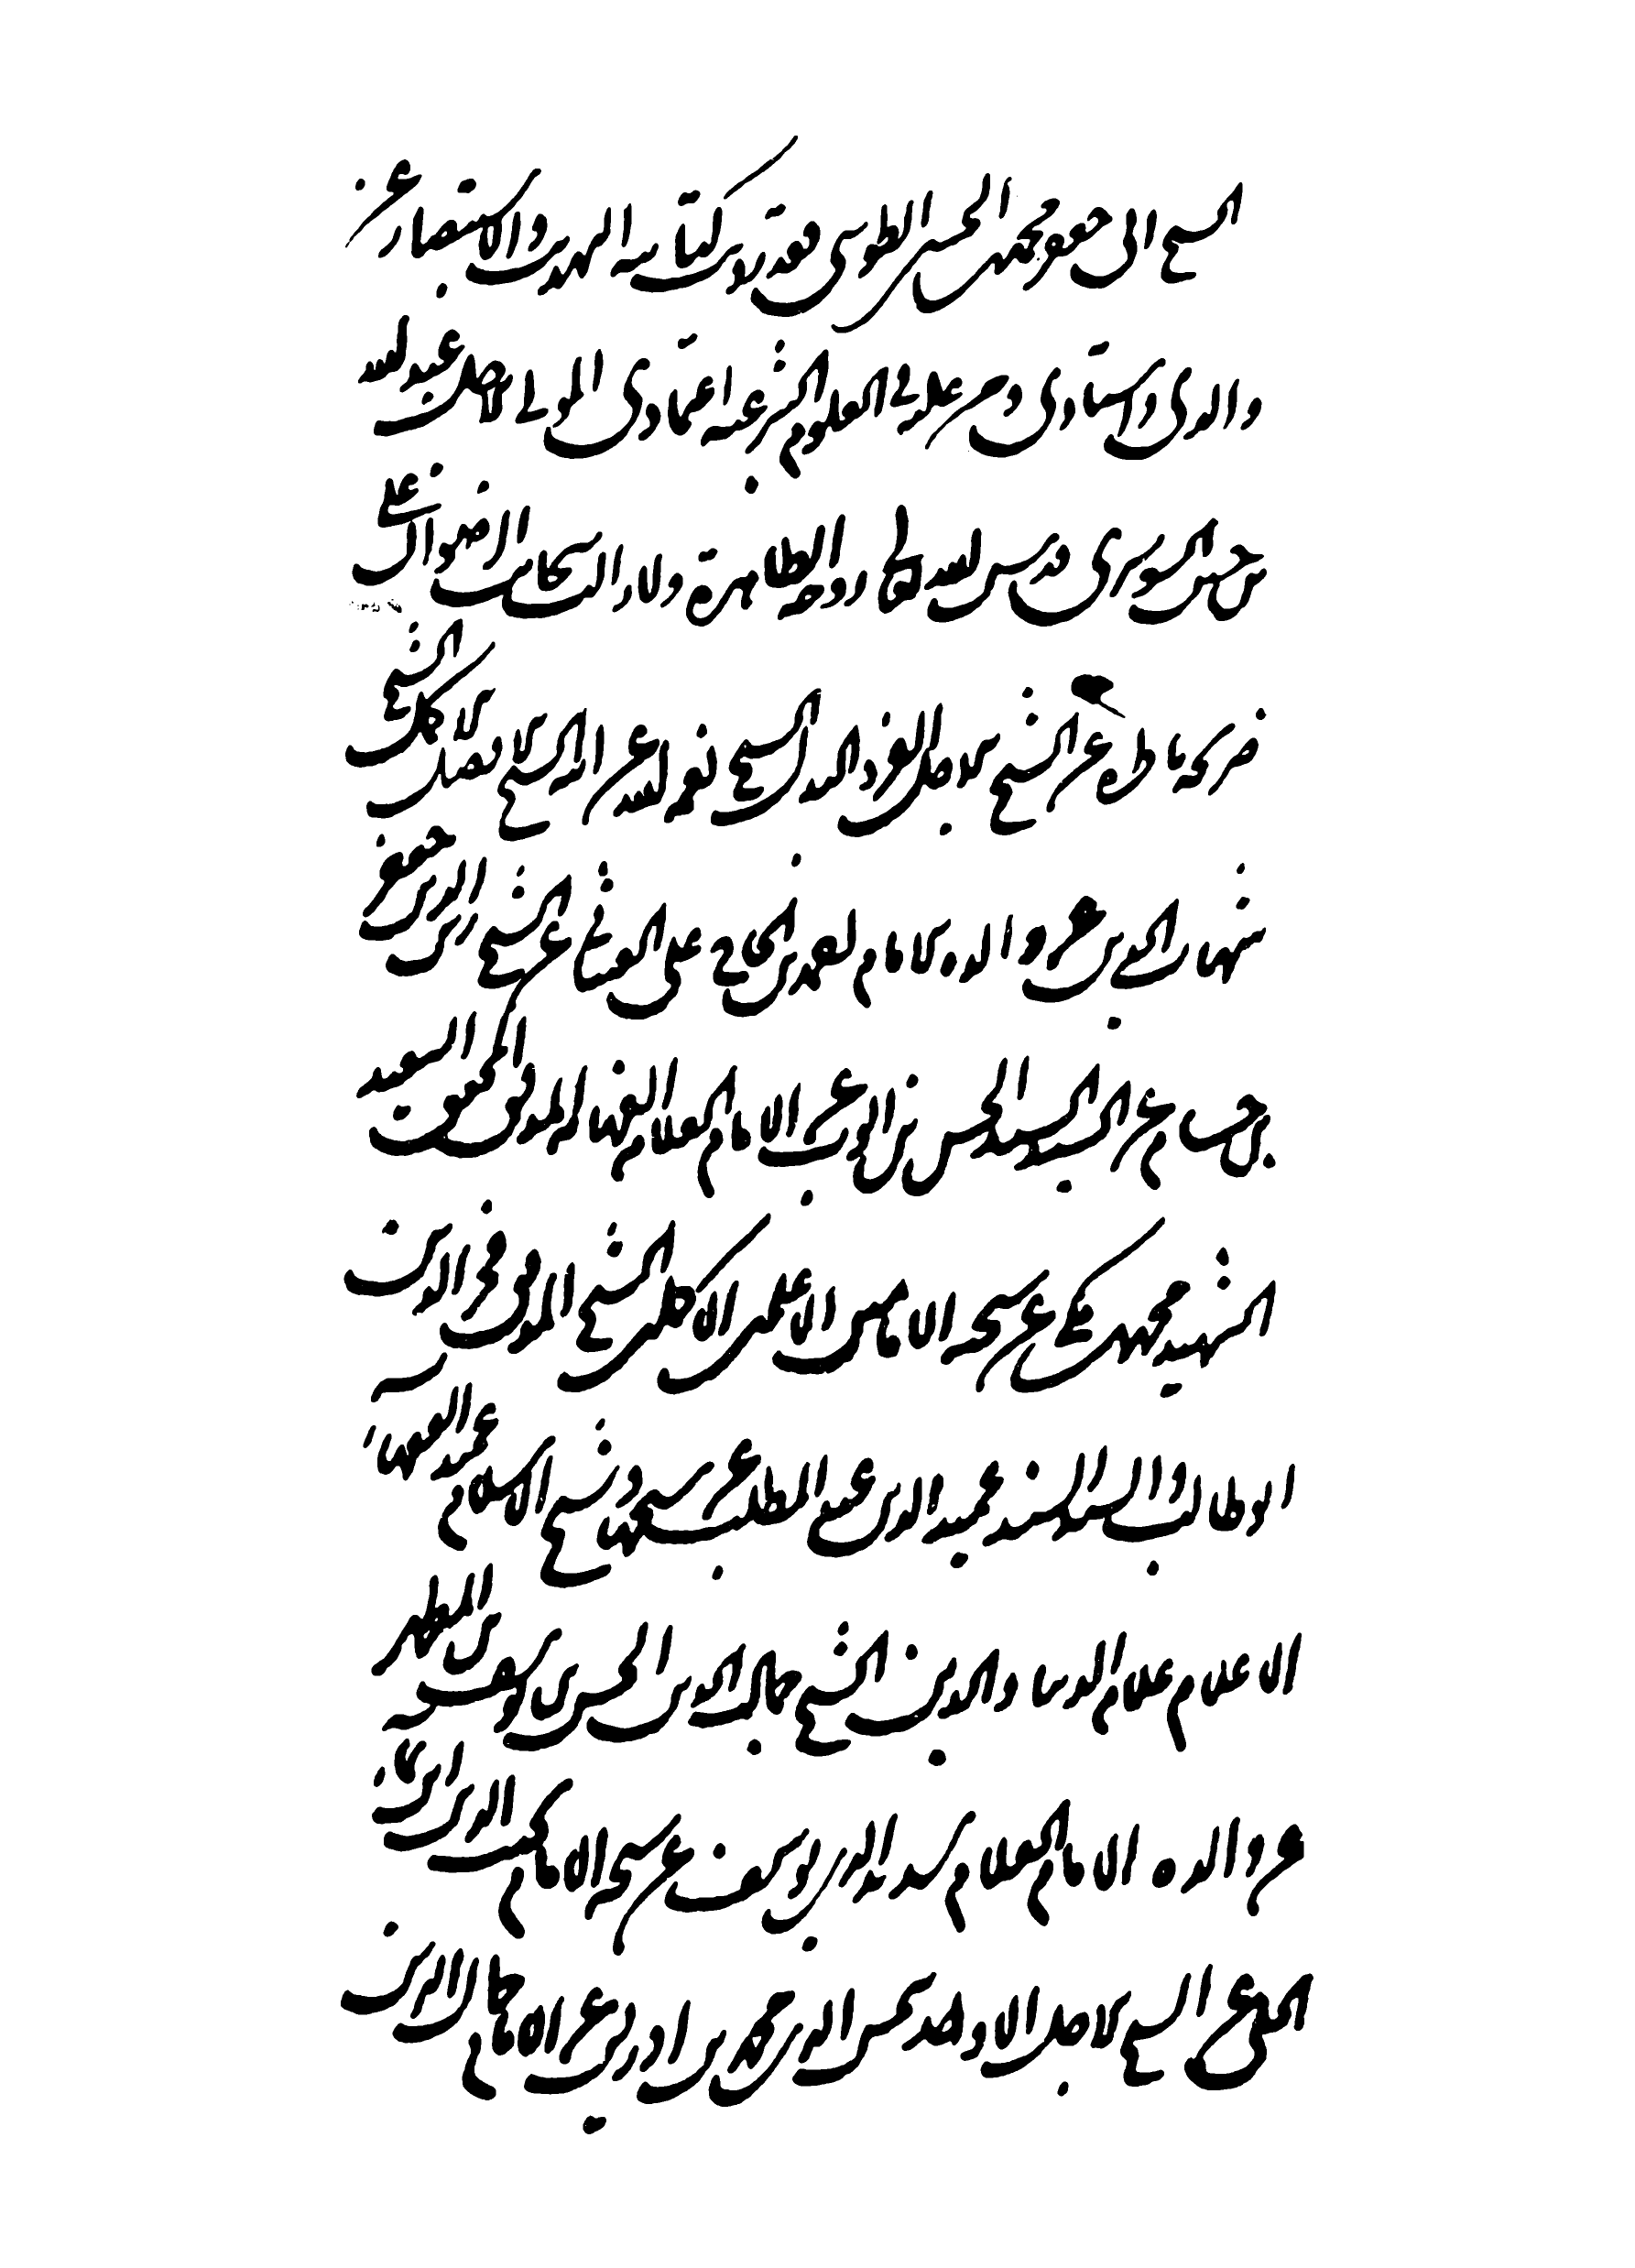 الشيخ ابى جعفر محمد بن الحسن الطوسى فقد روى كتابيه التهذيب والاستبصار عن
والدى واستادى ومن عليه فى العلوم الشرعيه اعتمادى المولى عبد الله
بن حسين التسترى قدس الله تعالى روحه الطاهرة ولا زالت سحائب الرضوان على
ضريحه ماطرة عن الشيخ الاجل نعمة الله عن ابيه الشيخ الاكمل الشيخ
شهاب الدين عن والده الامام محمد بن الحاج على العيناثى عن الشيخ زين الدين جعفر
بن حسام عن السيد الحسن بن ايوب عن الامام العلامة المدقق المحقق السعيد
الشهيد محمد بن مكى عن شيخيه الامامين الاعلمين الاكملين الشيخ المدقق فخر الدين
ابو طالب والسيد السند عميد الدين عبد المطلب عن شيخهما وشيخ الاسلام عمدة الفقهاء
الاعلام علامة الدنيا والدين الشيخ جمال الدين الحسن بن يوسف بن المطهر
عن والده الامام العلامة سديد الدين يوسف عن شيخه الامام نجيب الدين ابن نما
الحلى عن الشيخ الاجل الاوحد شمس الدين محمد بن ادريس عن الامام